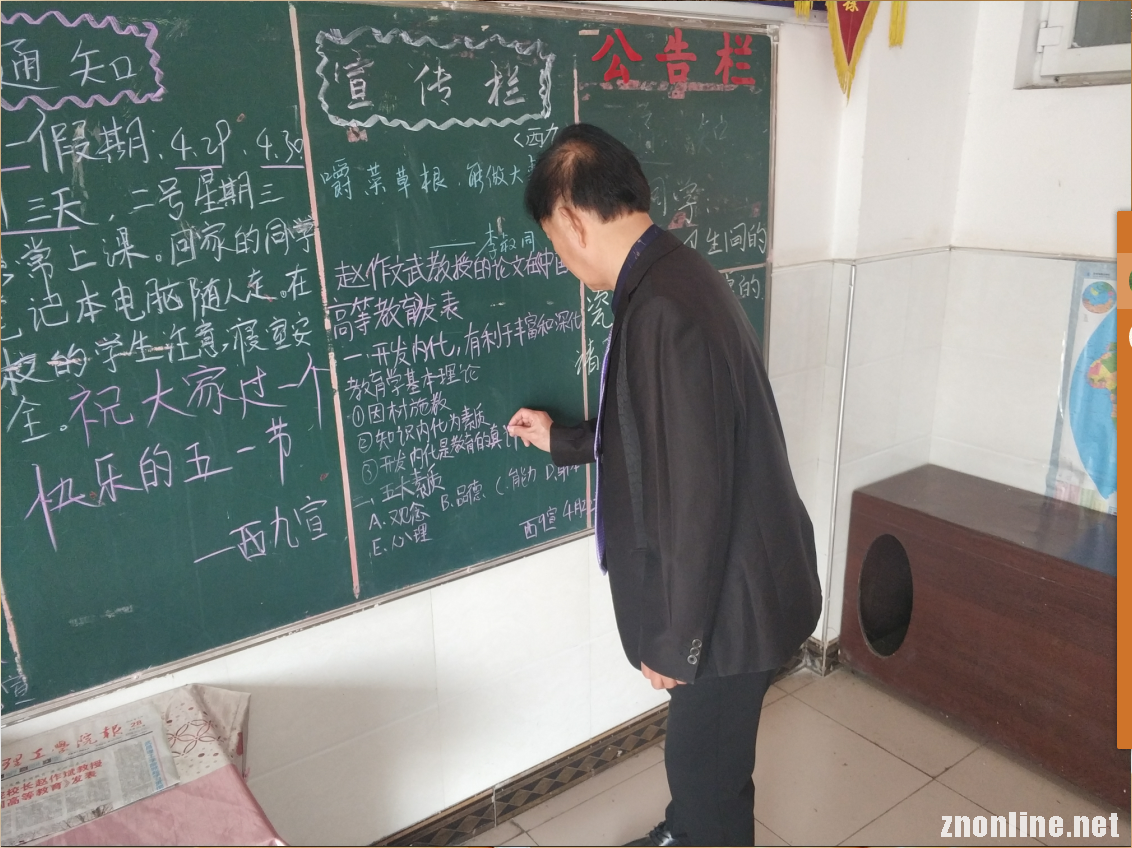 通知
假期:4.29、4.30
三天,二号星期三
常上课。回家的同学
记本电脑随人走。在
校的学生注意,寝室安
全。祝大家过一个
快乐的五一节
—西九宣
宣传栏
<西九
嚼菜草根,能做大
——李叔同
赵作文武教授的论文在中国
高等教育发表
一、开发内化,有利于丰富和深化
教育学基本理论
①因材施教
②知识内化为素质
③开发内化是教育的真
二、五大素质
A.观念 B.品德、C.能力 D.
E.心理
西九宣 4月
公告栏
同学:
卫生间的
的.
瓷
理工学院报
校长赵作斌教授
国高等教育》发表
znonline.net